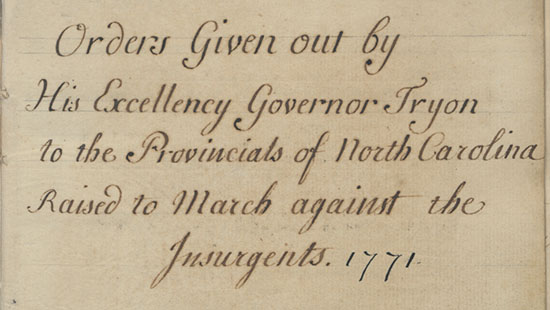 Orders Given out by
His Excellency Governor Tryon
to the Provincials of North Carolina
Raised to March against the
Insurgents. 1771.